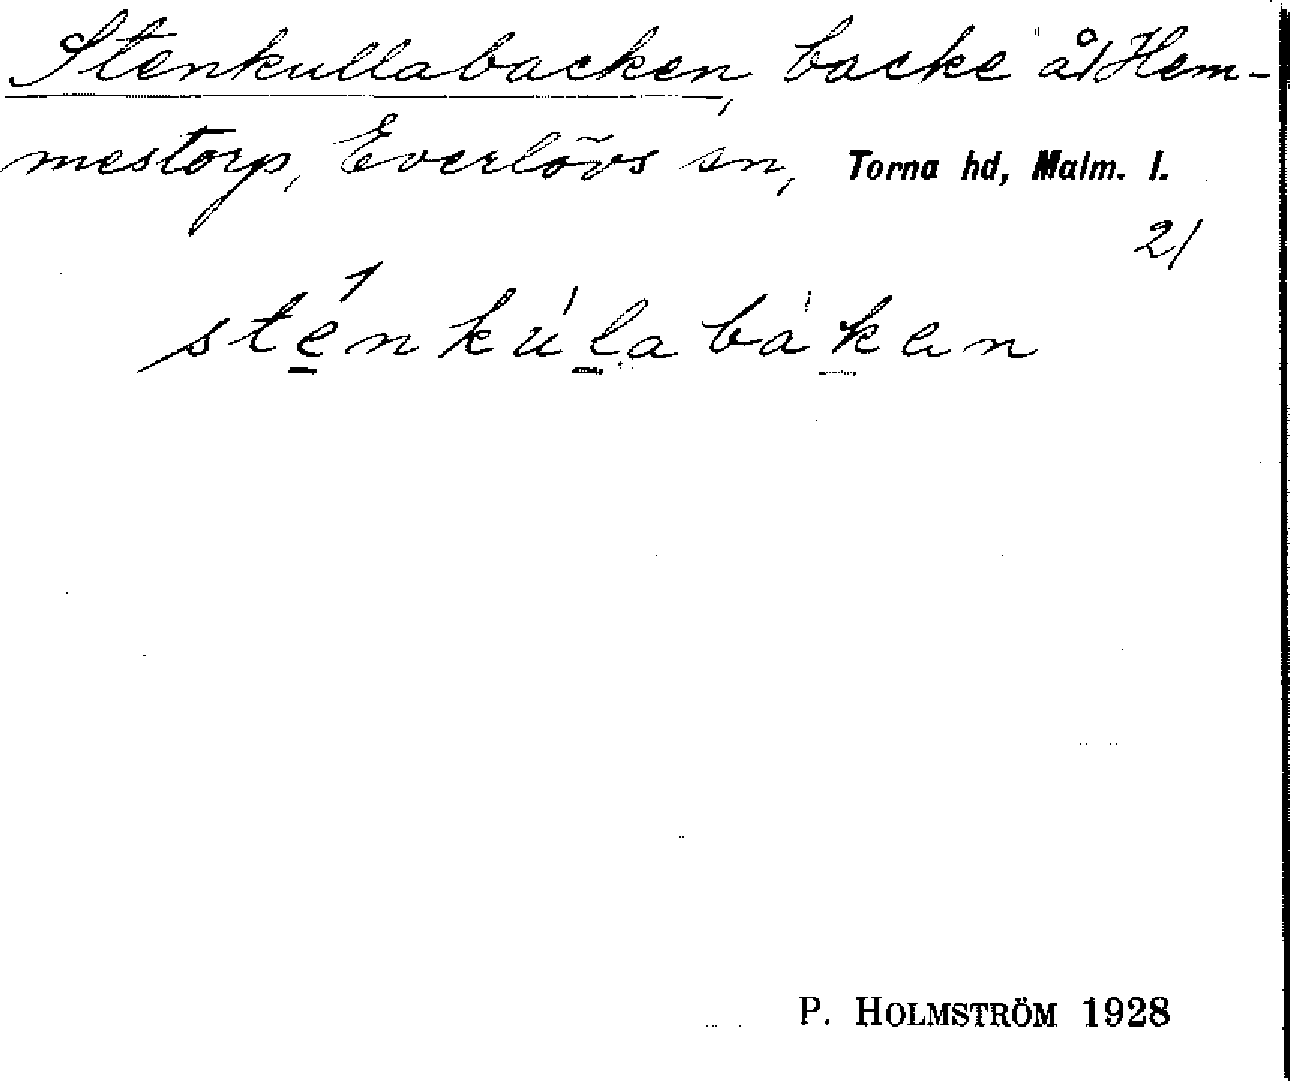 Stenkullabacken, backe å Hem-
mestorp, Everlövs sn, Torna hd, Malm. l.
2/
sténkúlabákan
P. HOLMSTRÖM 1928